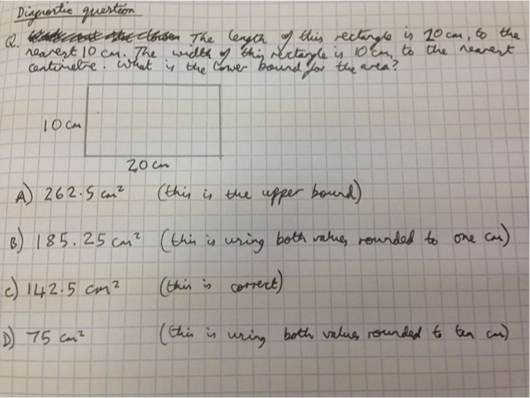 Diagnostic question
Q. The length of this rectangle is 20 cm, to the
nearest 10 cm. The width of this rectangle is 10 cm, to the nearest
centimetre. What is the lower bound for the area?
10 cm
20 cm
A) 262.5 cm² (this is the upper bound)
B) 185.25 cm² (this is using both values rounded to one cm)
C) 142.5 cm² (this is correct)
D) 75 cm² (this is using both values rounded to ten cm)